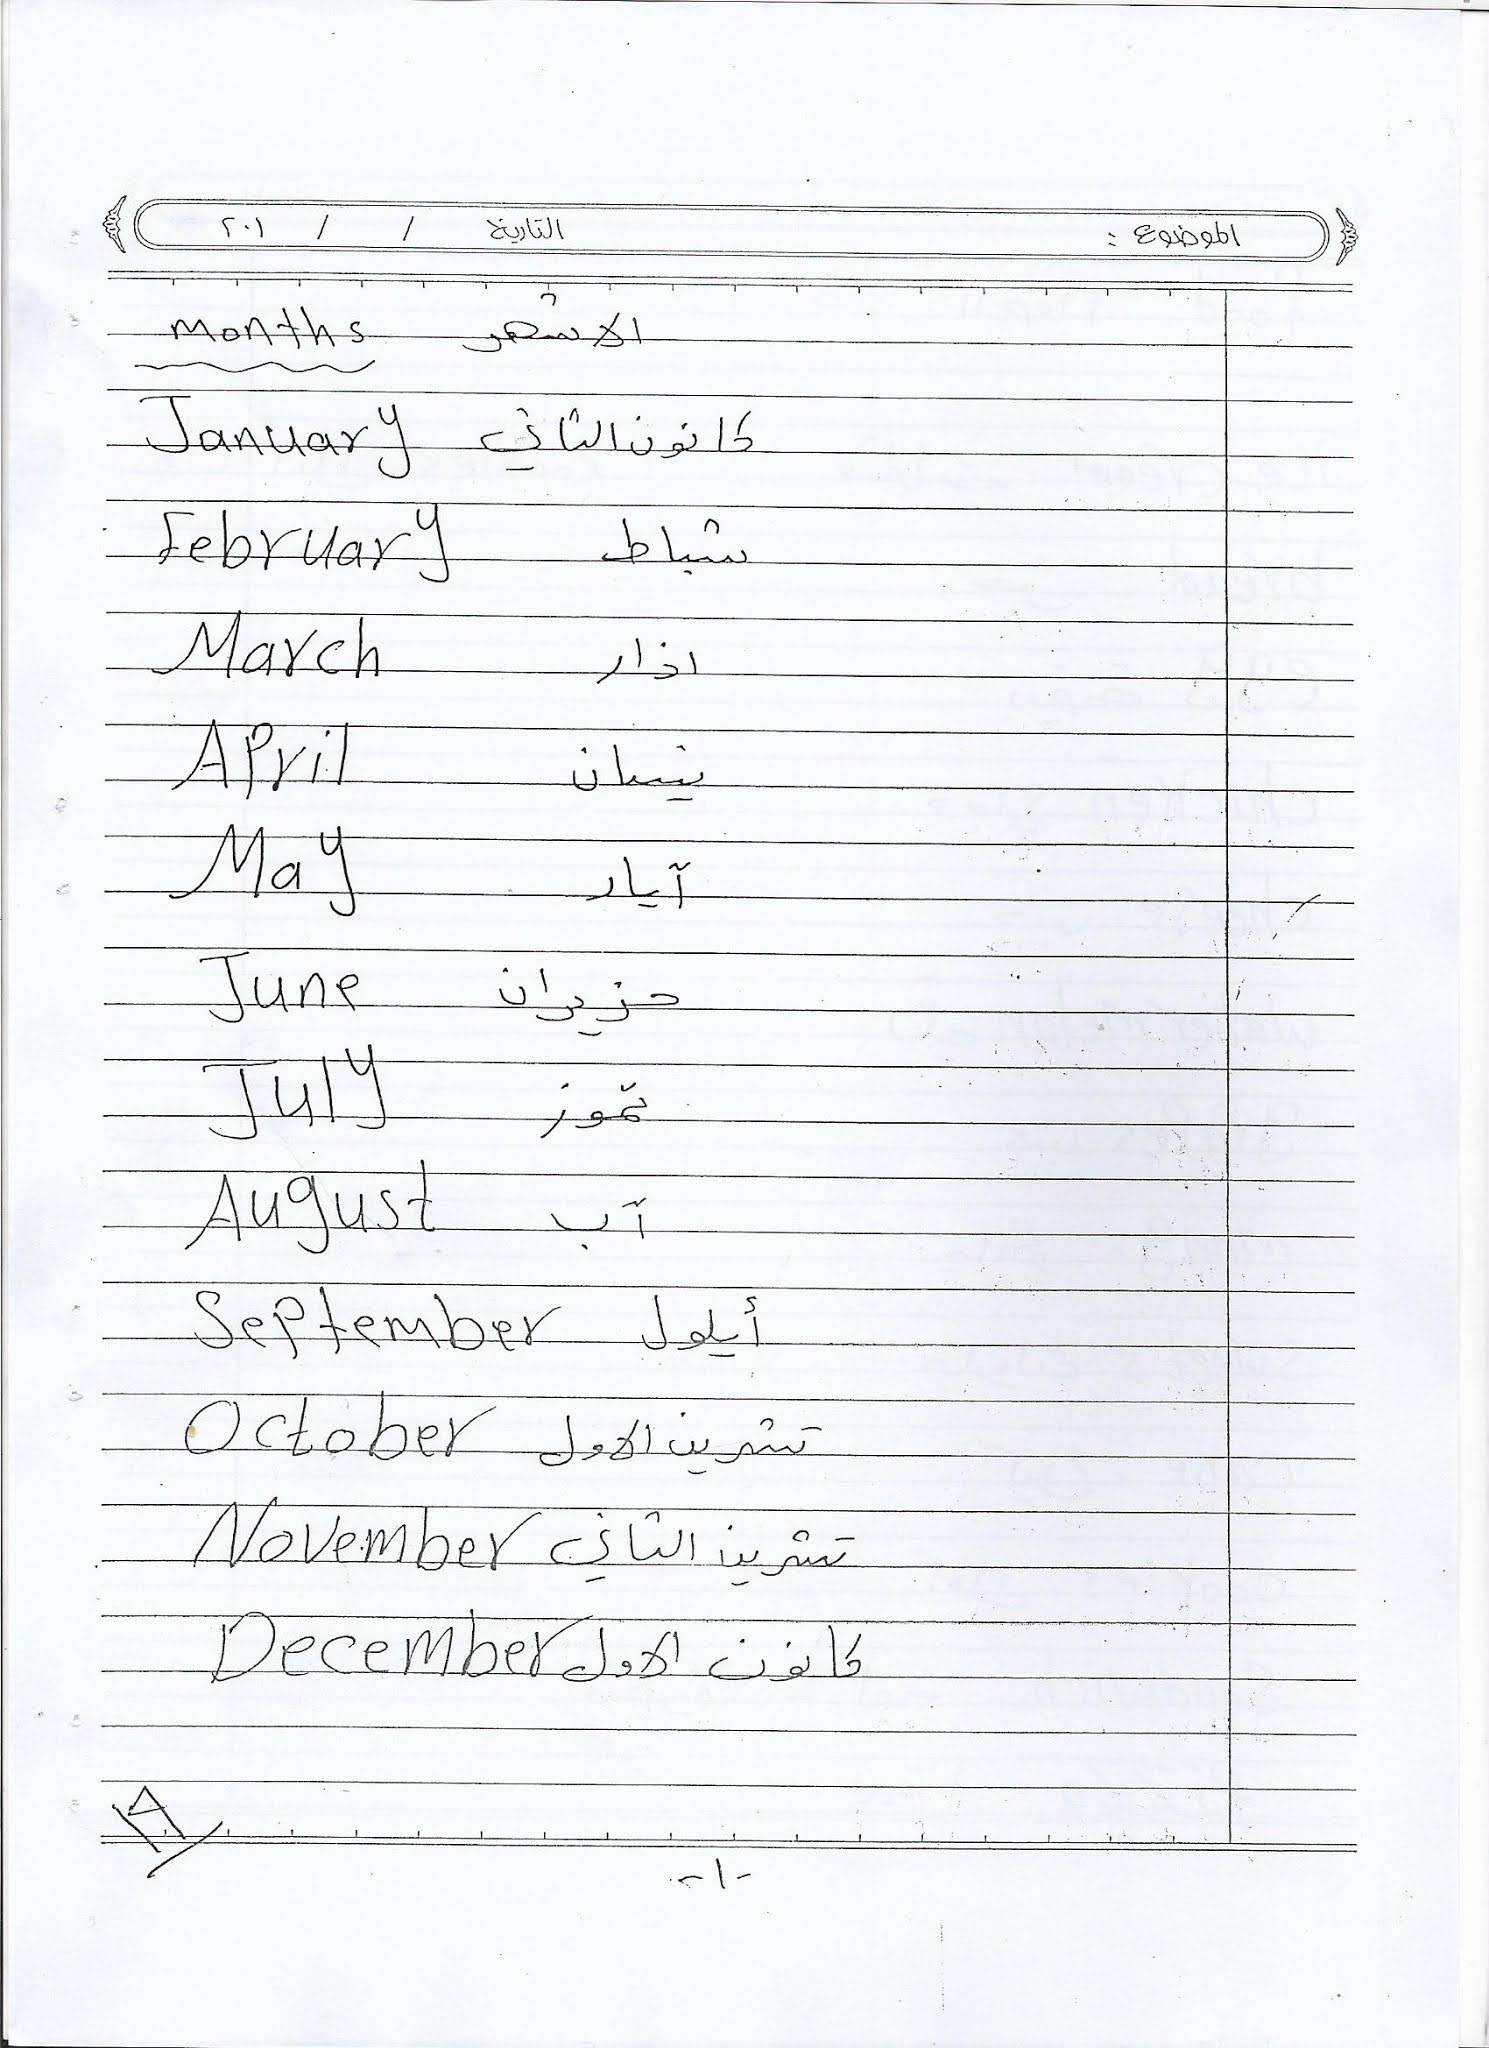 الموضوع : التاريخ / / ٢٠١
months الاشهر
January كانون الثاني
February شباط
March اذار
April نيسان
May آيار
June حزيران
July تموز
August آب
September أيلول
October تشرين الاول
November تشرين الثاني
December كانون الاول
-١-